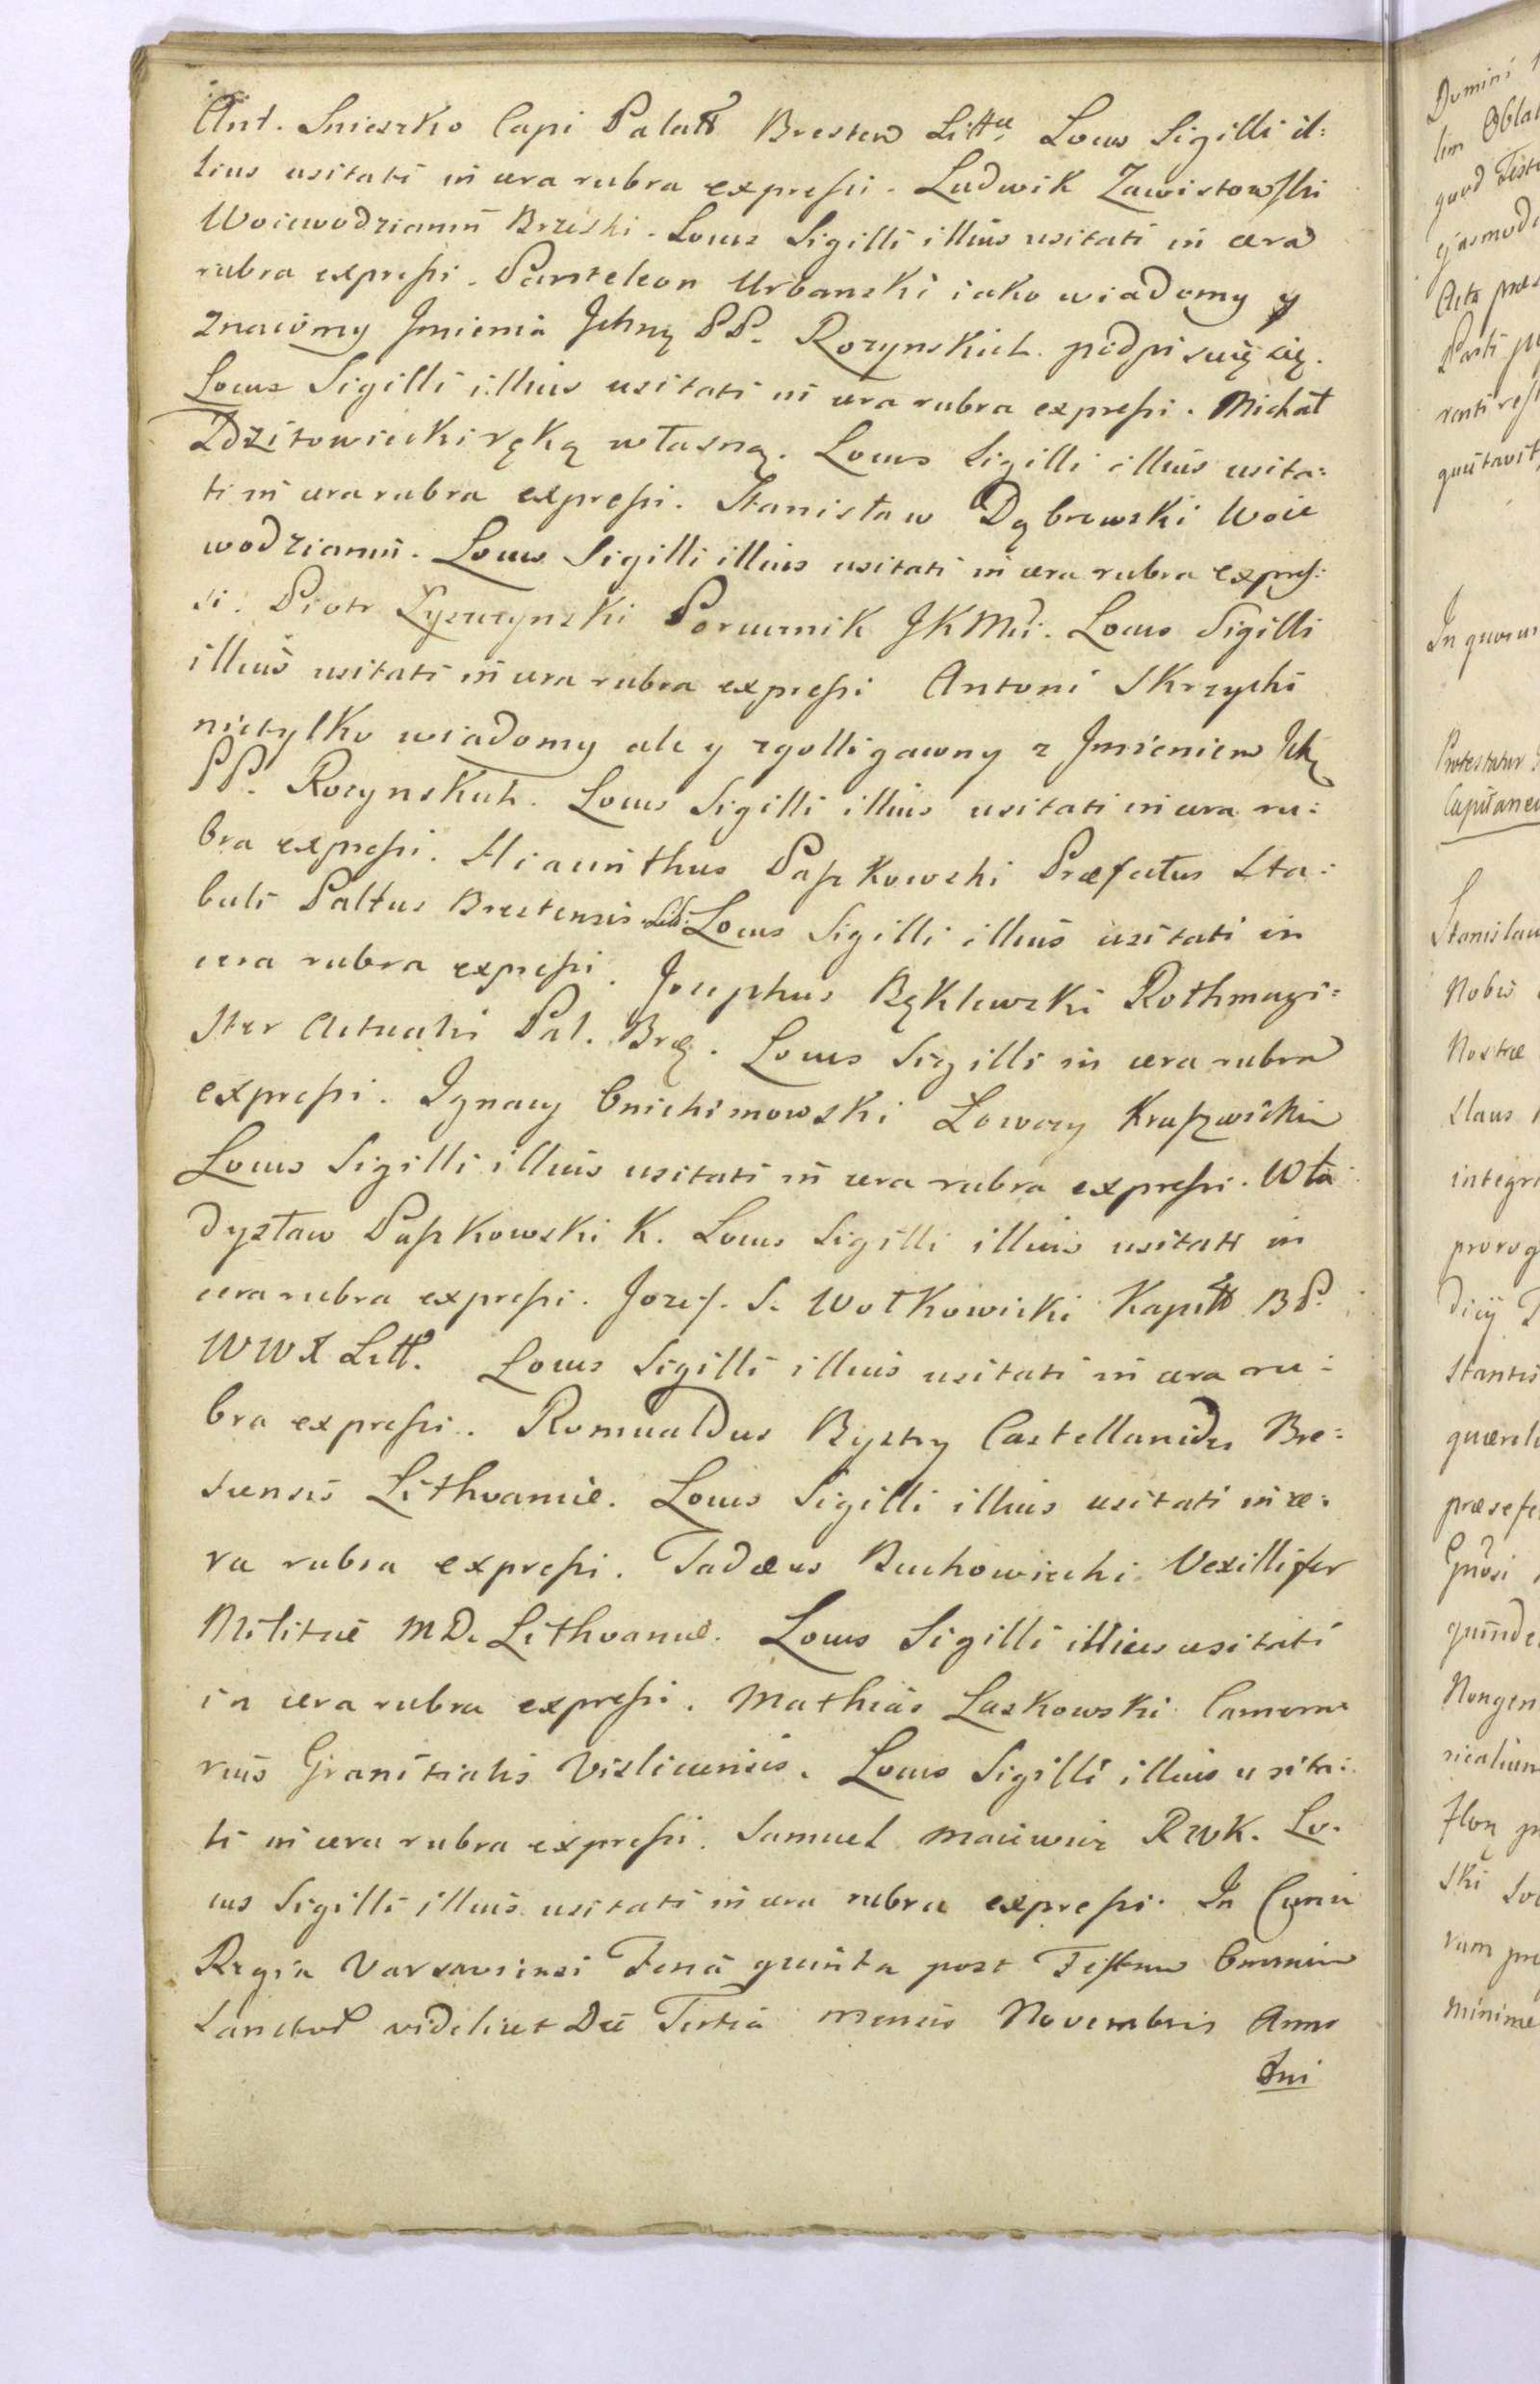 Ant. Snieszko Capi Palatt Bresten Littæ Locus Sigilli il:
lius usitati in cera rubra expressi. Ludwik Zawistowski
Woiewodzianin Brzeski. Locus Sigilli illius usitati in cera
rubra expressi. Panteleon Urbanski iako wiadomy y
znaiomy Jmienia Jchmę PP. Rozynskich podpisuię się.
Locus Sigilli illius usitati in cera rubra expressi. Michał
Zdzitowiecki ręką własną. Locus Sigilli illius usita:
ti in cera rubra expressi. Stanisław Dąbrowski Woie
wodzianin. Locus Sigilli illius usitati in cera rubra expres:
si. Piotr Łyszczynski Porucznik JKMci. Locus Sigilli
illius usitati in cera rubra expressi Antoni Skrzycki
nietylko wiadomy ale y zgolligacony z Jmieniem Jch
PP. Rozynskich. Locus Sigilli illius usitati in cera ru:
bra expressi. Hiacinthus Paszkowski Præfectus Sta:
buli Paltus Brestensis Litt: Locus Sigilli illius usitati in
cera rubra expressi. Josephus Bęklewski Rothmagi:
ster Actualis Pal. Brę. Locus Sigilli in cera rubra
expressi. Ignacy Cnichimowski Łowczy Kruszwicki
Locus Sigilli illius usitati in cera rubra expressi. Wła
dysław Paszkowski K. Locus Sigilli illius usitati in
cera rubra expressi. Jozef. S. Wołkowicki Kapitt BP.
WWX Litt. Locus Sigilli illius usitati in cera ru:
bra expressi. Romualdus Bystry Castellanides Bre:
stensis Lithvaniæ. Locus Sigilli illius usitati in ce:
ra rubra expressi. Tadæus Buchowiecki Vexillifer
Militiæ MD. Lithvaniæ. Locus Sigilli illius usitati
in cera rubra expressi. Mathias Laskowski Camera
rius Granitialis Visliciensis. Locus Sigilli illius usita:
ti in cera rubra expressi. Samuel Maciewicz RWK. Lo.
cus Sigilli illius usitati in cera rubra expressi. In Curia
Regia Varsaviensi Feria quinta post Festum Omnium
Sanctor videlicet Die Tertia mensis Novembris Anno
Dni
Domini
lim Oblat
quod Testi
ejusmodi
Acta
Parti
quitavit
In quorum
Protestatur
Capitaneu
Stanislau
Nobis
Nostræ
slaus
integr
prorog
dicij
stantis
quærel
præsefe
Gnosi
quinde
Nongen
nicalium
flor
ski
rum
minime